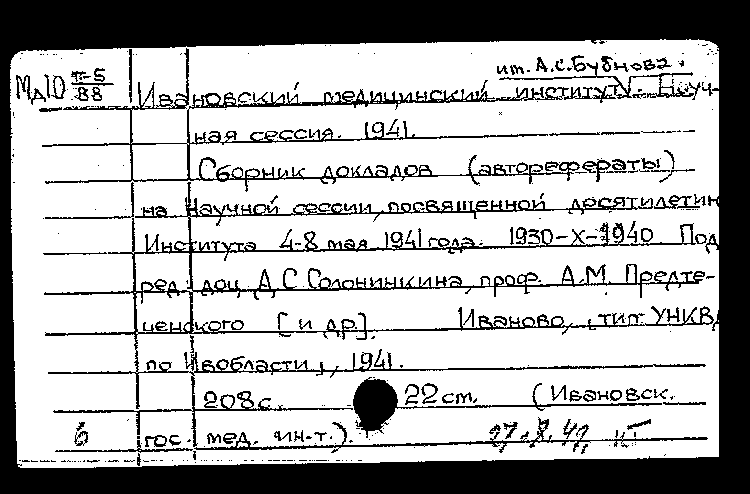 им. А.С.Бубнова.
Мд10 II-5/88 Ивановский медицинский институт. Науч-
ная сессия. 1941.
Сборник докладов (авторефераты)
на Научной сессии, посвященной десятилетию
Института 4-8 мая 1941 года. 1930-X-1940 Под
ред. доц. Д.С. Солонинкина, проф. А.М. Предте-
ченского [и др]. Иваново, тип. УНКВД
по Ивобласти, 1941.
208 с. 22 см. (Ивановск.
6 гос. мед. ин-т.).